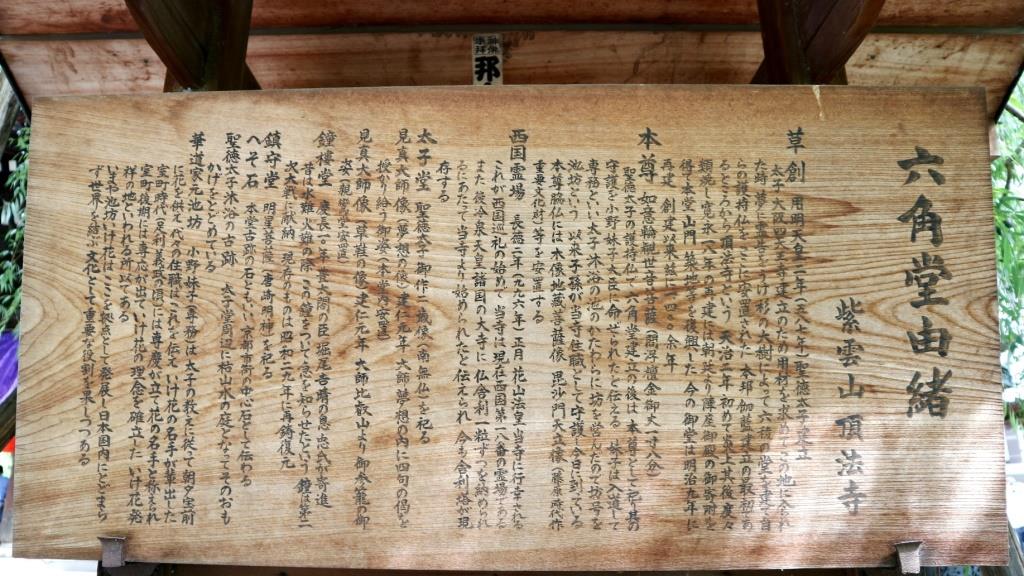 六角堂由緒
紫雲山 頂法寺
草創 用明天皇二年(五八七年)聖徳太子建立
太子大阪四天王寺建立のための用材を求めてこの地に入れ
た時 夢に霊告をうけ 杉の大樹によって六
らの護持仏をここに安置された 本邦伽藍建立の最初であ
るところから頂法寺という 天治二年初めて炎上 其後度々
類焼し 寛永八年の再建には朝廷より陣屋御殿の御寄附を
得て本堂 山門 築地等を復興した 今の御堂は明治九年に
再建 創建以来玆に一四〇〇余年
本尊 如意輪観世音菩薩(閻浮檀金御丈一寸八分)
聖徳太子の護持仏で六角堂建立の後は 本尊として祀 其の
守護を小野妹子大臣に命せられたと伝える 妹子は入道して
専務といい太子沐浴の池のかたわらに坊を営んだので坊号を
池坊という 以来子孫が当寺住職として守護し今日に到っている
本尊両脇仏には 木像地蔵菩薩像 毘沙門天立像(藤原時代作
重要文化財)等を安置する
西国霊場 長徳二年(九九六年)正月 花山法皇当寺に行幸される
これが西国巡礼の始めで当寺は現在西国第一八番の霊場である
また 後冷泉天皇諸国の大寺に 仏舎利一粒ずつを納められ
るにあたって当寺より始められたと伝えられ 今も舎利塔が現
存する
太子堂 聖徳太子御作二歳像(南無仏)を祀る
見真大師像(夢想の像)建仁元年大師夢想の内に四句の偈を
授かり給う御姿(本堂内安置)
見真大師像(草鞋の像)建仁元年 大師比叡山より御参籠の御
姿(親鸞堂安置)
鐘楼堂 慶長一〇年 豊太閤の臣 堀尾吉晴の息忠氏が寄進
昔は火難水難の際 この鐘をついて急を知らせたという 鐘は第二
次大戦に献納 現存のものは昭和二九年に再鋳復元
鎮守堂 明星菩薩 唐崎明神を祀る
へそ石 本堂古跡の石ともいい 京都市街の中心石として伝わる
聖徳太子沐浴の古跡 太子堂周辺に枯山水の庭となってそのおも
かげをとどめている
華道家元池坊 小野妹子(専務)は太子の教えに従って朝夕宝前
に花を供え 代々の住職はこれを伝えて いけ花の名手が輩出した
室町時代(足利義政の頃)には専慶が立て花の名手と称されら
室町後期には専応が出て いけ花の理念を確立した いけ花発
祥の地といわれる所以である
いまや池坊いけ花はここを拠点として発展し日本国内にとどまら
ず世界を結ぶ文化として重要な役割を果しつつある